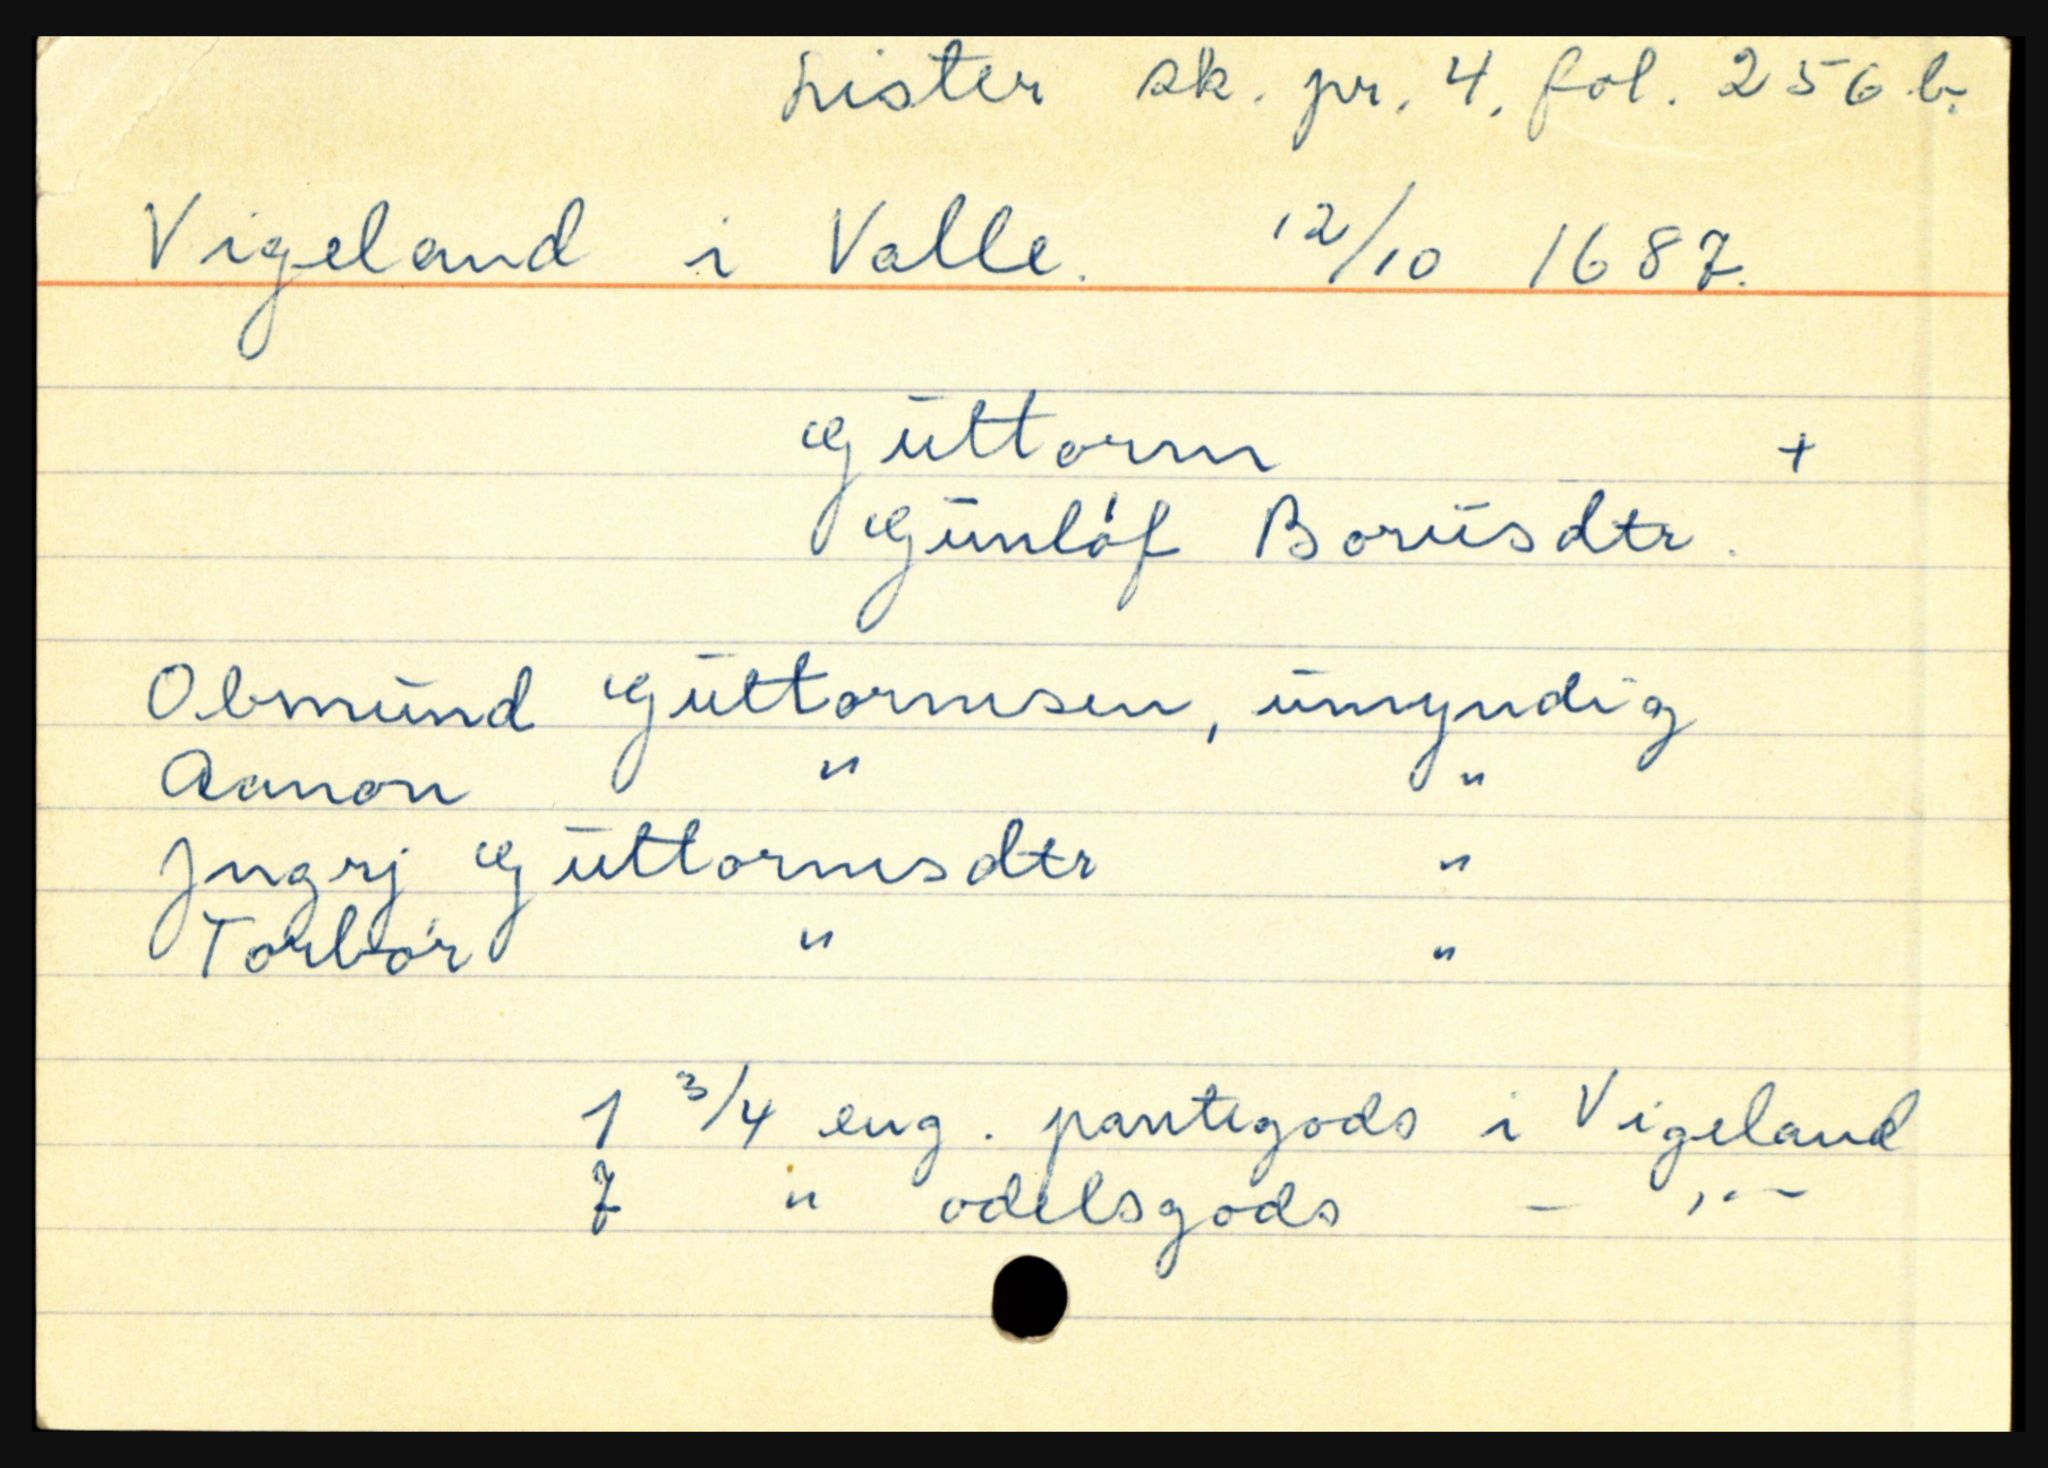 Lister sk. pr. 4. fol. 256 b.
Vigeland i Valle. 12/10 1687.
Guttorm +
Gunlóf Borusdtr.
Obmund Guttormsen, umyndig
Aanon " "
Jngrj Guttormsdtr "
Torbór " "
1 3/4 eng. pantegods i Vigeland
7 " odelsgods - , . -